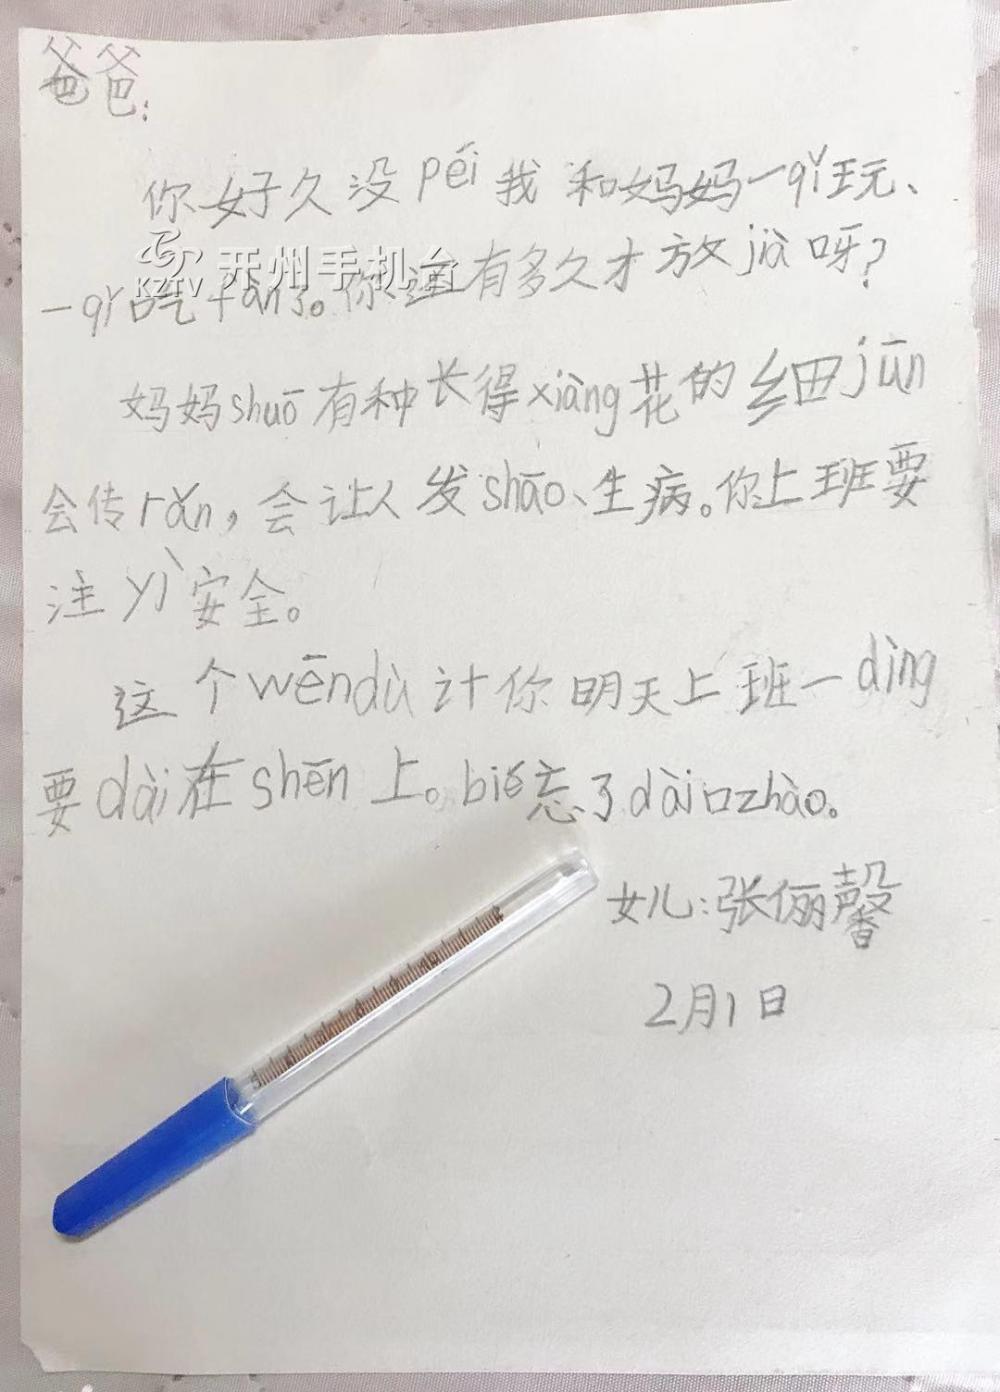 爸爸:
你好久没péi我和妈妈一qǐ玩、
KZTV 开州手机台
一qǐ吃fàn了。你还有多久才放jià呀?
妈妈shuō有种长得xiàng花的细jūn
会传rǎn,会让人发shāo、生病。你上班要
注yì安全。
这个wēndù计你明天上班一dìng
要dài在shēn上。bié忘了dài口zhào。
女儿:张俪馨
2月1日